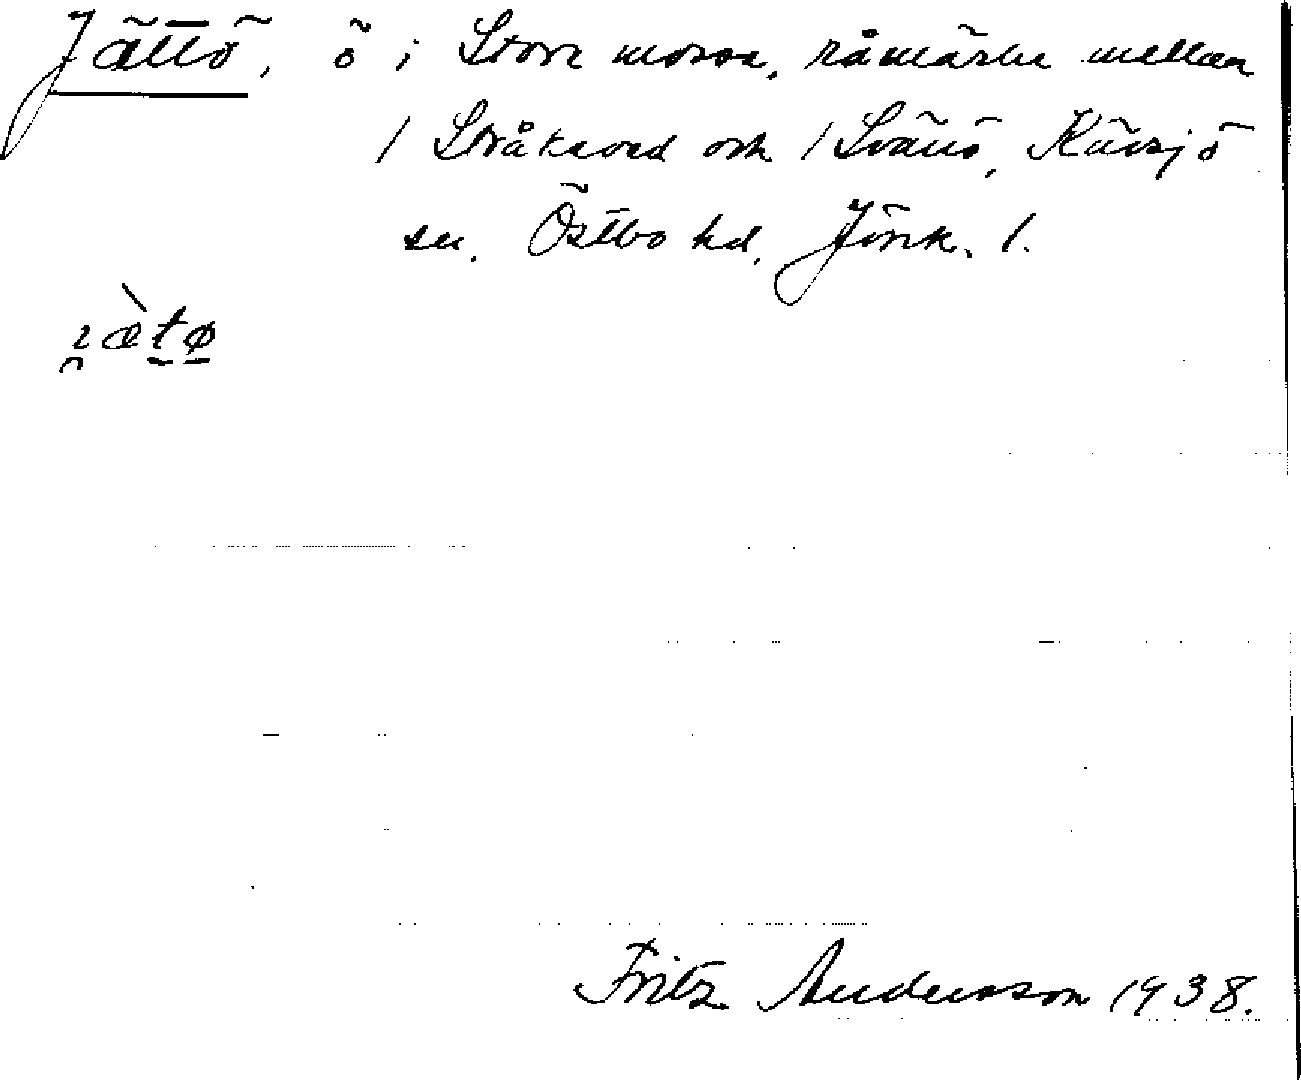 Jättö, ö i Store mosse, råmärke mellan
/ Stråkeved och / Svänö, Kävsjö
sn. Östbo hd, Jönk. l.
Fritz Andersson 1938.